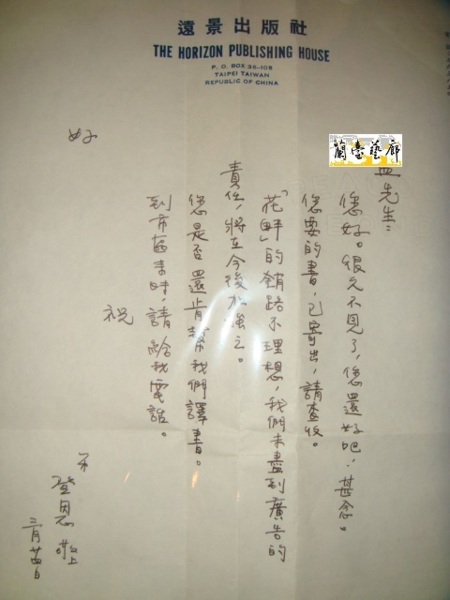 遠景出版社
THE HORIZON PUBLISHING HOUSE
P. O. BOX 36-108
TAIPEI TAIWAN
REPUBLIC OF CHINA
蘭臺藝廊
先生：
您好。很久不見了，您還好吧，甚念。
您要的書，已寄出，請查收。
「花鮮」的銷路不理想，我們未盡到廣告的
責任，將在今後加強之。
您是否還肯幫我們譯書。
到市區來時，請給我電話。
祝
好
弟
登恩敬上
三月廿四日